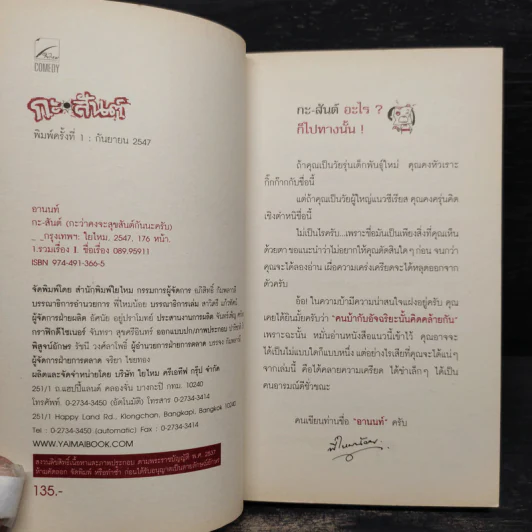 COMEDY
กะสันต์
พิมพ์ครั้งที่ 1 : กันยายน 2547
อานนท์
กะ-สันต์ (กะว่าคงจะสุขสันต์กันนะครับ)
_ _กรุงเทพฯ: ใยไหม. 2547. 176 หน้า.
1.รวมเรื่อง I. ชื่อเรื่อง 089.95911
ISBN 974-491-366-5
จัดพิมพ์โดย สำนักพิมพ์ใยไหม กรรมการผู้จัดการ
บรรณาธิการอำนวยการ พี่ใหม่น้อย บรรณาธิการเล่ม สาวิตรี
ผู้จัดการฝ่ายผลิต อัศนัย อยู่ปราโมทย์ ประสานงานการผลิต
กราฟิกดีไซเนอร์ จันทรา สุขศรีอินทร์ ออกแบบปก/ภาพประกอบ
พิสูจน์อักษร รัชนี วงศ์ลาโพธิ์ ผู้อำนวยการฝ่ายการตลาด
ผู้จัดการฝ่ายการตลาด จริยา ไชยทอง
ผลิตและจัดจำหน่ายโดย บริษัท ใยไหม ครีเอทีฟ กรุ๊ป จำกัด
251/1 ถ.แฮปปี้แลนด์ คลองจั่น บางกะปิ กทม. 10240
โทรศัพท์ 0-2734-3450 (อัตโนมัติ) โทรสาร 0-2734-3414
251/1 Happy Land Rd., Klongchan, Bangkapi, Bangkok 10240
Tel : 0-2734-3450 (automatic) Fax : 0-2734-3414
WWW.YAIMAIBOOK.COM
สงวนลิขสิทธิ์เนื้อหาและภาพประกอบ ตามพระราชบัญญัติ พ.ศ. 2537
ห้ามคัดลอก จัดพิมพ์ หรือทำซ้ำ ก่อนได้รับอนุญาตเป็นลายลักษณ์อักษร
135.-
กะ-สันต์ อะไร ?
ก็ไปทางนั้น !
ถ้าคุณเป็นวัยรุ่นเด็กพันธุ์ใหม่ คุณคงหัวเราะ
กิ๊กก๊ากกับชื่อนี้
แต่ถ้าคุณเป็นวัยผู้ใหญ่แนวซีเรียส คุณคงครุ่นคิด
เชิงตำหนิชื่อนี้
ไม่เป็นไรครับ...เพราะชื่อมันเป็นเพียงสิ่งที่คุณเห็น
ด้วยตา ขอแนะนำว่าไม่อยากให้คุณตัดสินใดๆ ก่อน จนกว่า
คุณจะได้ลองอ่าน เผื่อความเคร่งเครียดจะได้หลุดออกจาก
ตัวครับ
อ้อ! ในความบ้ามีความน่าสนใจแฝงอยู่ครับ คุณ
เคยได้ยินมั้ยครับว่า "คนบ้ากับอัจฉริยะนั้นคิดคล้ายกัน"
เพราะฉะนั้น หมั่นอ่านหนังสือแนวนี้เข้าไว้ คุณอาจจะ
ได้เป็นไม่แบบใดก็แบบหนึ่ง แต่อย่างไรเสียที่คุณจะได้แน่ๆ
จากเล่มนี้ คือได้คลายความเครียด ได้ขำเล็กๆ ได้เป็น
คนอารมณ์ดีชั่วขณะ
คนเขียนท่านชื่อ "อานนท์" ครับ